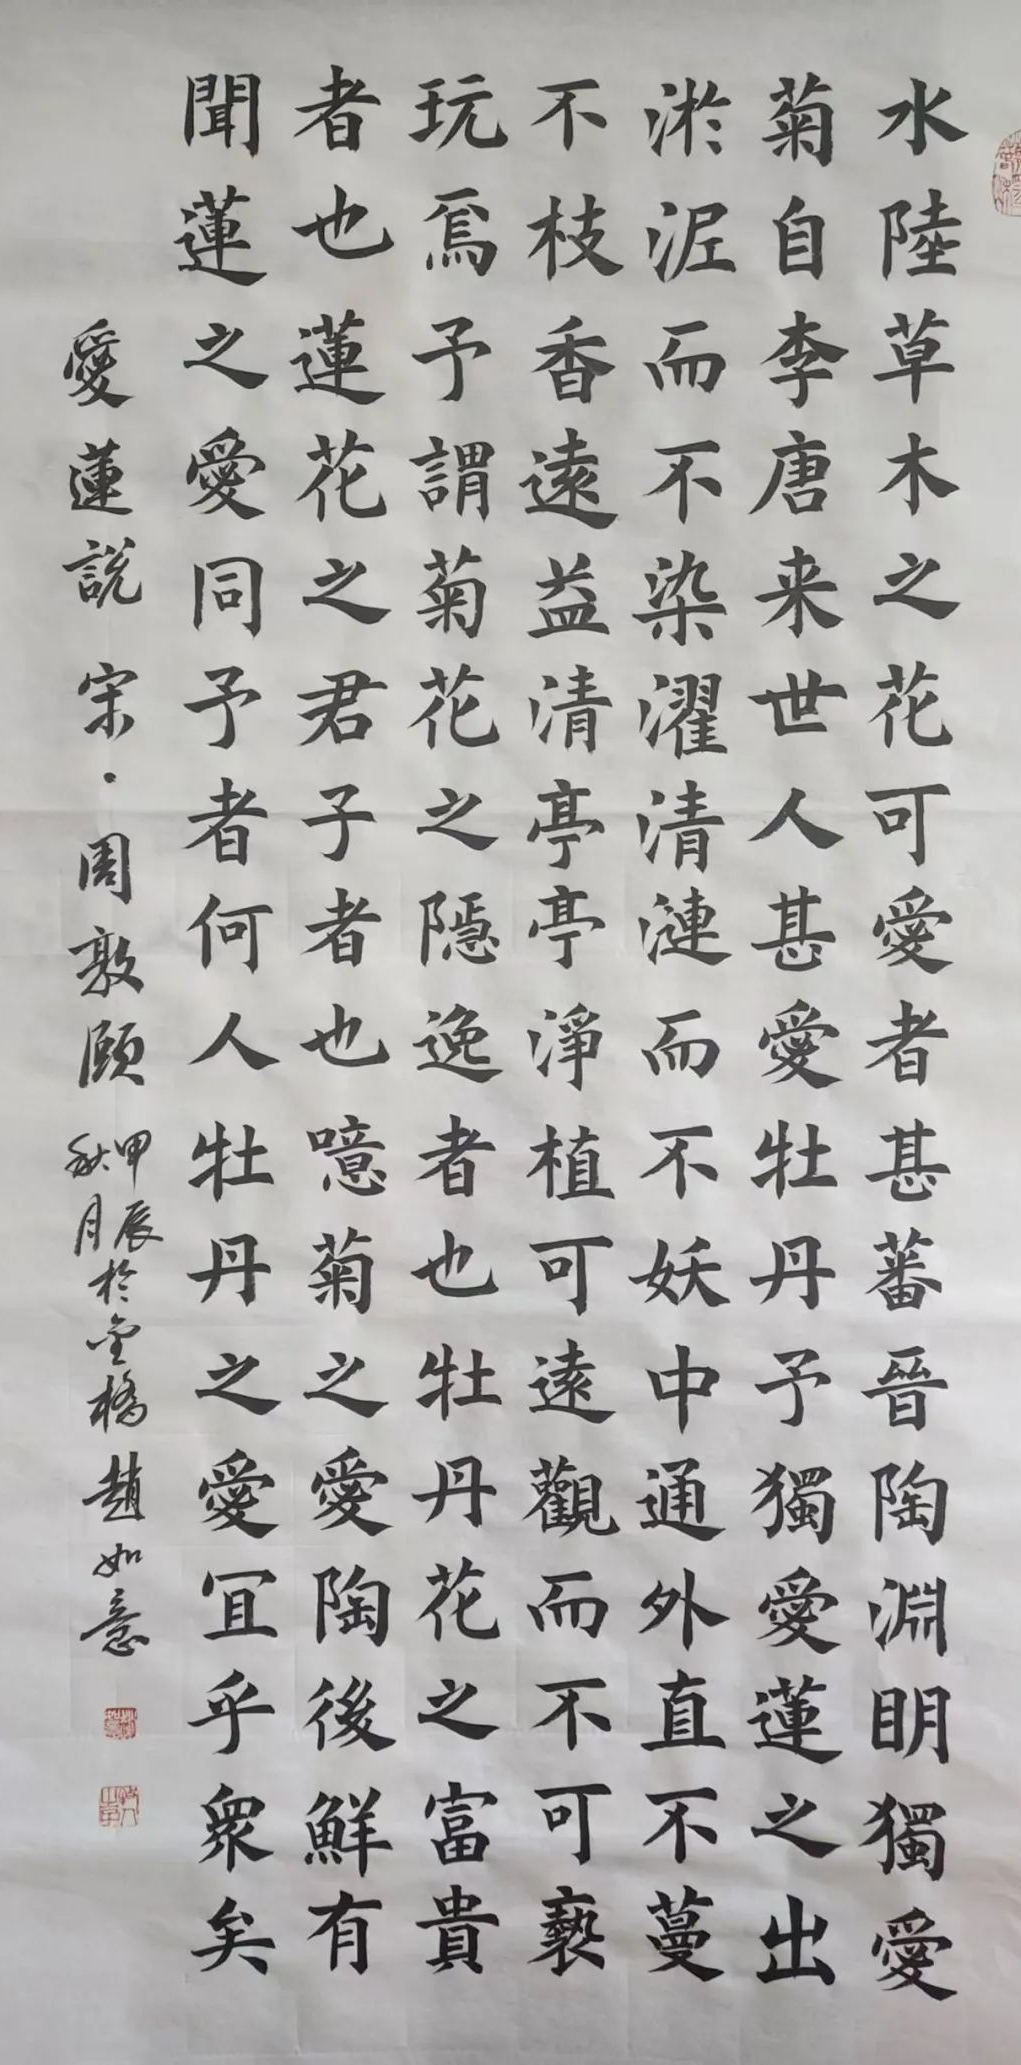 水陸草木之花可愛者甚蕃晉陶淵明獨愛
菊自李唐来世人甚愛牡丹予獨愛蓮之出
淤泥而不染濯清漣而不妖中通外直不蔓
不枝香遠益清亭亭淨植可遠觀而不可褻
玩焉予謂菊花之隱逸者也牡丹花之富貴
者也蓮花之君子者也噫菊之愛陶後鮮有
聞蓮之愛同予者何人牡丹之愛宜乎衆矣
愛蓮說 宋·周敦頤
甲辰
秋月於金橋趙如意